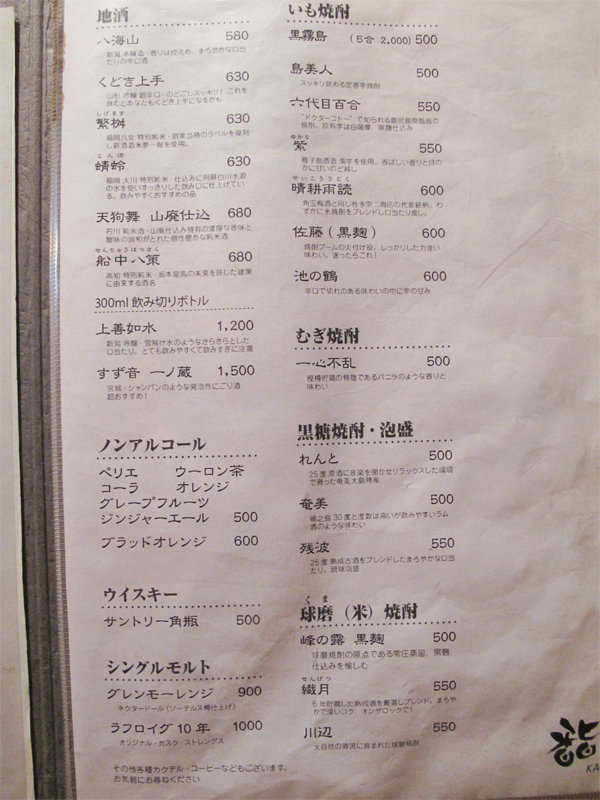 地酒
八海山 580
新潟 本醸造・香りは控えめ、まろやかな口当
たりの辛口酒
くどき上手 630
山形 吟醸 超辛口・のどごしスッキリ！これを
飲むとあなたもくどき上手になるかも
しげます
繁桝 630
福岡八女 特別純米・創業当時のラベルを復刻
し新酒造米夢一献を使用。
とんぼ
蜻蛉 630
福岡 大川 特別純米・仕込みに阿蘇白川水源
の水を使いすっきりした飲み口に仕上げてい
る。飲みやすくおすすめの品
天狗舞 山廃仕込 680
石川 純米酒・山廃仕込み特有の濃厚な香味と
酸味の調和がとれた個性豊かな純米酒
せんちゅうはっさく
船中八策 680
高知 特別純米・坂本龍馬の未来を託した建策
に由来する酒名
300ml 飲み切りボトル
上善如水 1,200
新潟 吟醸・雪解け水のようなさらさらとした
口当たり。とても飲みやすくて飲みすぎに注意
すず音 一ノ蔵 1,500
宮城・シャンパンのような発泡性にごり酒
超おすすめ！
ノンアルコール
ペリエ ウーロン茶
コーラ オレンジ
グレープフルーツ
ジンジャーエール 500
ブラッドオレンジ 600
ウイスキー
サントリー角瓶 500
シングルモルト
グレンモーレンジ 900
ネクタードール（ソーテルヌ樽仕上げ）
ラフロイグ 10 年 1000
オリジナル・カスク・ストレングス
その他各種カクテル・コーヒーなどもございます。
お気軽にお尋ねください
いも焼酎
黒霧島 （5合 2,000) 500
島美人 500
スッキリ飲める定番芋焼酎
六代目百合 550
“ドクターコトー”で知られる鹿児島県甑島の
焼酎。原料芋は白薩摩、黒麹仕込み
ゆかり
紫 550
種子島酒造 紫芋を使用。香ばしい香りとほの
かに甘いのど越し
せいこううどく
晴耕雨読 600
角玉梅酒と同じ佐多宗二商店の代表銘柄。わ
ずかに米焼酎をブレンドし口当たり良し。
佐藤（黒麹） 600
焼酎ブームの火付け役。しっかりした力強い
味わい。迷ったらこれ！
池の鶴 600
辛口で切れのある味わいの中に芋の甘み
むぎ焼酎
一心不乱 500
樫樽貯蔵の特徴であるバニラのような香りと
味わい
黒糖焼酎・泡盛
れんと 500
25度 原酒に音楽を聞かせリラックスした環境
で育った奄美大島特産
奄美 500
徳之島 30 度と度数は高いが飲みやすいラム
酒のような味わい
残波 550
25度 熟成古酒をブレンドしたまろやかな口当
たり。琉球泡盛
くま
球磨（米）焼酎
峰の露 黒麹 500
球磨焼酎の原点である常圧蒸留、黒麹
仕込みを愉しむ
せんげつ
繊月 550
6年貯蔵した熟成酒を厳選しブレンド。まろや
かで深いコク、オンザロックで！
川辺 550
大自然の清流に育まれた球磨焼酎
KA